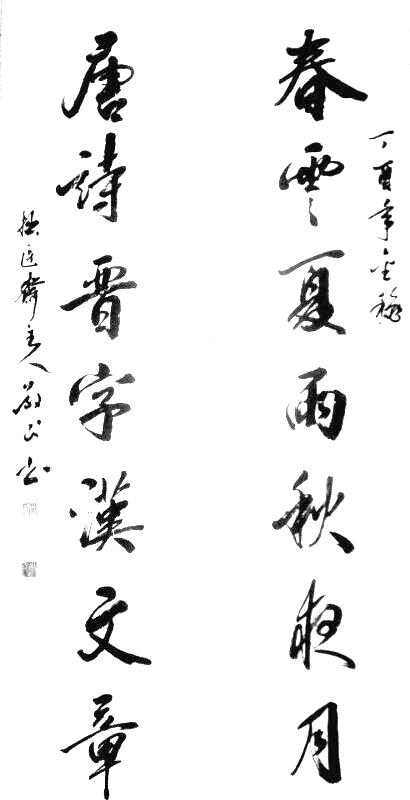 春雲夏雨秋夜月
丁酉年金秋
唐詩晉字漢文章
齋主人
書